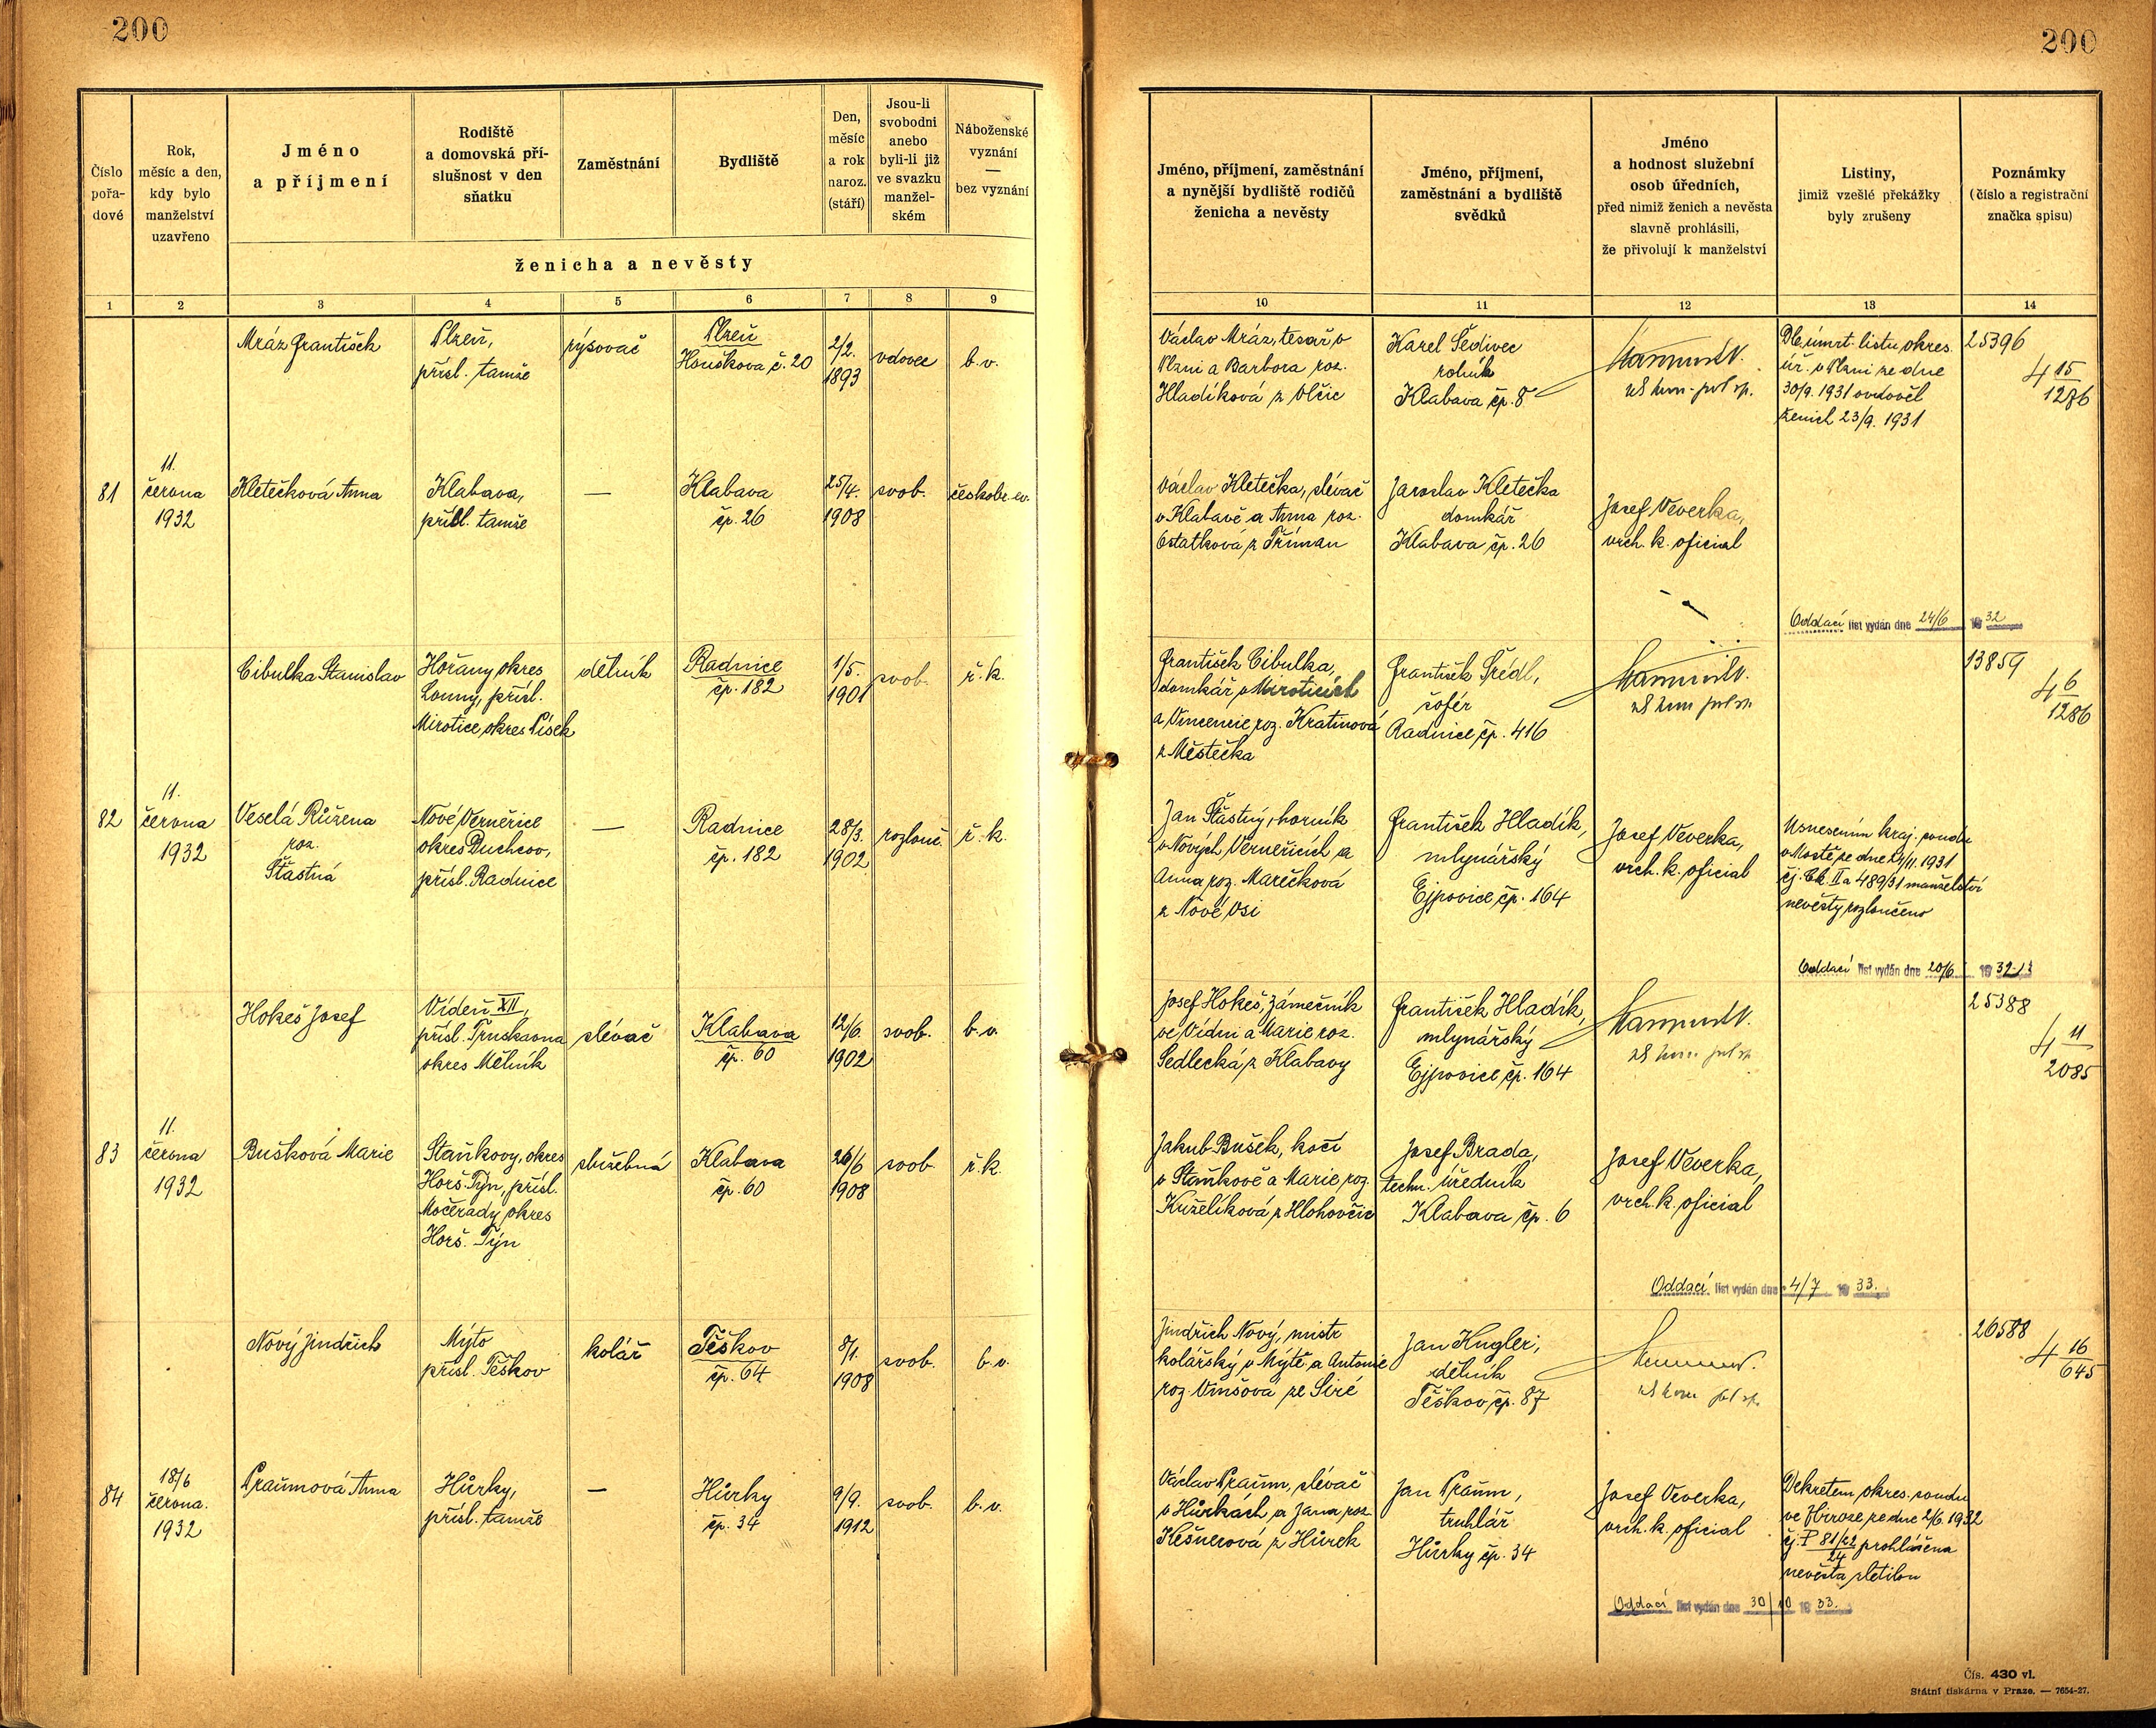 200
200
Číslo pořa-dové
Rok, měsíc a den, kdy bylo manželství uzavřeno
Jméno a příjmení
Rodiště a domovská pří-slušnost v den sňatku
Zaměstnání
Bydliště
Den, měsíc a rok naroz. (stáří)
Jsou-li svobodni anebo byli-li již ve svazku manžel-ském
Náboženské vyznání — bez vyznání
ženicha a nevěsty
1 2 3 4 5 6 7 8 9
Jméno, příjmení, zaměstnání a nynější bydliště rodičů ženicha a nevěsty
Jméno, příjmení, zaměstnání a bydliště svědků
Jméno a hodnost služební osob úředních, před nimiž ženich a nevěsta slavně prohlásili, že přivolují k manželství
Listiny, jimiž vzešlé překážky byly zrušeny
Poznámky (číslo a registrační značka spisu)
10 11 12 13 14
Mráz František
Plzeň,
přísl. tamže
rýsovač
Plzeň
Houškova č. 20
2/2.
1893
vdovec
b.v.
Václav Mráz, tesař v
Plzni a Barbora roz.
Hladíková z Vlčic
Karel Šedivec
rolník
Klabava čp. 8
Dle úmrt. listu okres.
úř. v Plzni ze dne
30/9. 1931 ovdověl
ženich 23/9. 1931
25396
4 15/1286
81
11.
června
1932
Kletečková Anna
Klabava,
přísl. tamže
—
Klabava
čp. 26
25/4.
1908
svob.
českobr. ev.
Václav Kletečka, slévač
v Klabavě a Anna roz.
Ostatková z Příman
Jaroslav Kletečka
domkář
Klabava čp. 26
Josef Veverka,
vrch. k. oficial
Oddací list vydán dne 24/6 1932
Cibulka Stanislav
Hořany okres
Louny, přísl.
Mirotice okres Písek
dělník
Radnice
čp. 182
1/5.
1901
svob.
ř.k.
František Cibulka,
domkář v Miroticích
a Vincencie roz. Kratinová
z Městečka
František Šredl,
šofér
Radnice čp. 416
13859
4 6/1286
82
11.
června
1932
Veselá Růžena
roz.
Šťastná
Nové Verneřice
okres Duchcov,
přísl. Radnice
—
Radnice
čp. 182
28/3.
1902
rozlouč.
ř.k.
Jan Šťastný, horník
v Nových Verneřicích a
Anna roz. Marečková
z Nové Vsi
František Hladík,
mlynářský
Ejpovice čp. 164
Josef Veverka,
vrch. k. oficial
Usnesením kraj. soudu
v Mostě ze dne 1931
čj. Ck. IIa 489/31 manželství
nevěsty rozloučeno
Oddací list vydán dne 20/6 1932
Hokeš Josef
Vídeň XII,
přísl. Truskavna
okres Mělník
slévač
Klabava
čp. 60
12/6.
1902
svob.
b.v.
Josef Hokeš, zámečník
ve Vídni a Marie roz.
Sedlecká z Klabavy
František Hladík,
mlynářský
Ejpovice čp. 164
25388
4 11/2085
83
11.
června
1932
Bušková Marie
Staňkovy, okres
Horš. Týn, přísl.
Močerady okres
Horš. Týn
služebná
Klabava
čp. 60
26/6
1908
svob
ř.k.
Jakub Bušek, kočí
v Staňkově a Marie roz.
Kuželíková z Hlohovčic
Josef Brada,
techn. úředník
Klabava čp. 6
Josef Veverka,
vrch. k. oficial
Oddací list vydán dne 4/7 1933.
Nový Jindřich
Mýto
přísl. Těškov
kolář
Těškov
čp. 64
8/1.
1908
svob.
b.v.
Jindřich Nový, mistr
kolářský v Mýtě a Antonie
roz. Vinšová ze Siré
Jan Kugler,
dělník
Těškov čp. 87
26588
4 16/645
84
18/6
června.
1932
Praumová Anna
Hůrky,
přísl. tamže
—
Hůrky
čp. 34
9/9.
1912
svob.
b.v.
Václav Praum, slévač
v Hůrkách a Jana roz.
Hešnerová z Hůrek
Jan Praum,
truhlář
Hůrky čp. 34
Josef Veverka,
vrch. k. oficial
Dekretem okres. soudu
ve Zbiroze ze dne 2/6. 1932
čj. P 81/22
24 prohlášena
nevěsta zletilou
Oddací list vydán dne 30/10 1933.
Čís. 430 vl.
Státní tiskárna v Praze. — 7654-27.